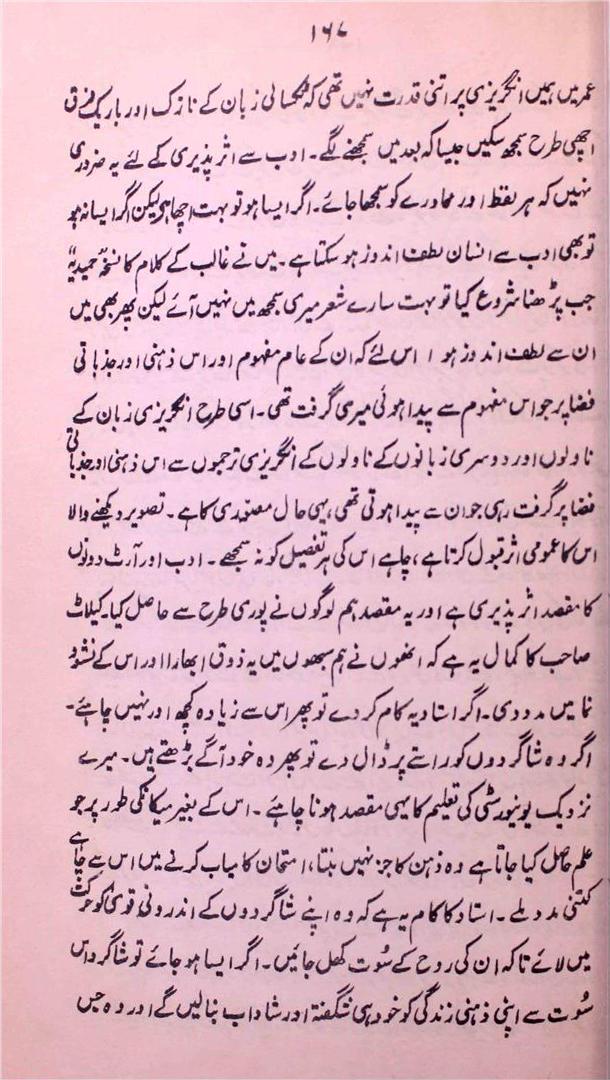 ۱۶۷
عمر میں ہمیں انگریزی پر اتنی قدرت نہیں تھی کہ ٹکسالی زبان کے نازک اور باریک فرق
اچھی طرح سمجھ سکیں جیسا کہ بعد میں سمجھنے لگے۔ ادب سے اثر پذیری کے لئے یہ ضروری
نہیں کہ ہر لفظ اور محاورے کو سمجھا جائے۔ اگر ایسا ہو تو بہت اچھا ہے لیکن اگر ایسا نہ ہو
تو بھی ادب سے انسان لطف اندوز ہو سکتا ہے۔ میں نے غالب کے کلام کا نسخہ "حمیدیہ"
جب پڑھنا شروع کیا تو بہت سارے شعر میری سمجھ میں نہیں آئے لیکن پھر بھی میں
ان سے لطف اندوز ہوا اس لئے کہ ان کے عام مفہوم اور اس ذہنی اور جذباتی
فضا پر جو اس مفہوم سے پیدا ہوئی میری گرفت تھی۔ اسی طرح انگریزی زبان کے
ناولوں اور دوسری زبانوں کے ناولوں کے انگریزی ترجموں سے اس ذہنی اور جذباتی
فضا پر گرفت رہی جو ان سے پیدا ہوتی تھی، یہی حال مصوّری کا ہے۔ تصویر دیکھنے والا
اس کا عمومی اثر قبول کرتا ہے، چاہے اس کی ہر تفصیل کو نہ سمجھے۔ ادب اور آرٹ دونوں
کا مقصد اثر پذیری ہے اور یہ مقصد ہم لوگوں نے پوری طرح سے حاصل کیا۔ کیلاٹ
صاحب کا کمال یہ ہے کہ انھوں نے ہم سبھوں میں یہ ذوق ابھارا اور اس کے نشو و
نما میں مدد دی۔ اگر استاد یہ کام کر دے تو پھر اس سے زیادہ کچھ اور نہیں چاہئے۔
اگر وہ شاگردوں کو راستے پر ڈال دے تو پھر وہ خود آگے بڑھتے ہیں۔ میرے
نزدیک یونیورسٹی کی تعلیم کا یہی مقصد ہونا چاہئے۔ اس کے بغیر میکانکی طور پر جو
علم حاصل کیا جاتا ہے وہ ذہن کا جز نہیں بنتا، امتحان کامیاب کرنے میں اس سے چاہے
کتنی مدد ملے۔ استاد کا کام یہ ہے کہ وہ اپنے شاگردوں کے اندرونی قویٰ کو حرکت
میں لائے تاکہ ان کی روح کے سُوت کھل جائیں۔ اگر ایسا ہو جائے تو شاگرد اس
سُوت سے اپنی ذہنی زندگی کو خود ہی شگفتہ اور شاداب بنالیں گے اور وہ جس